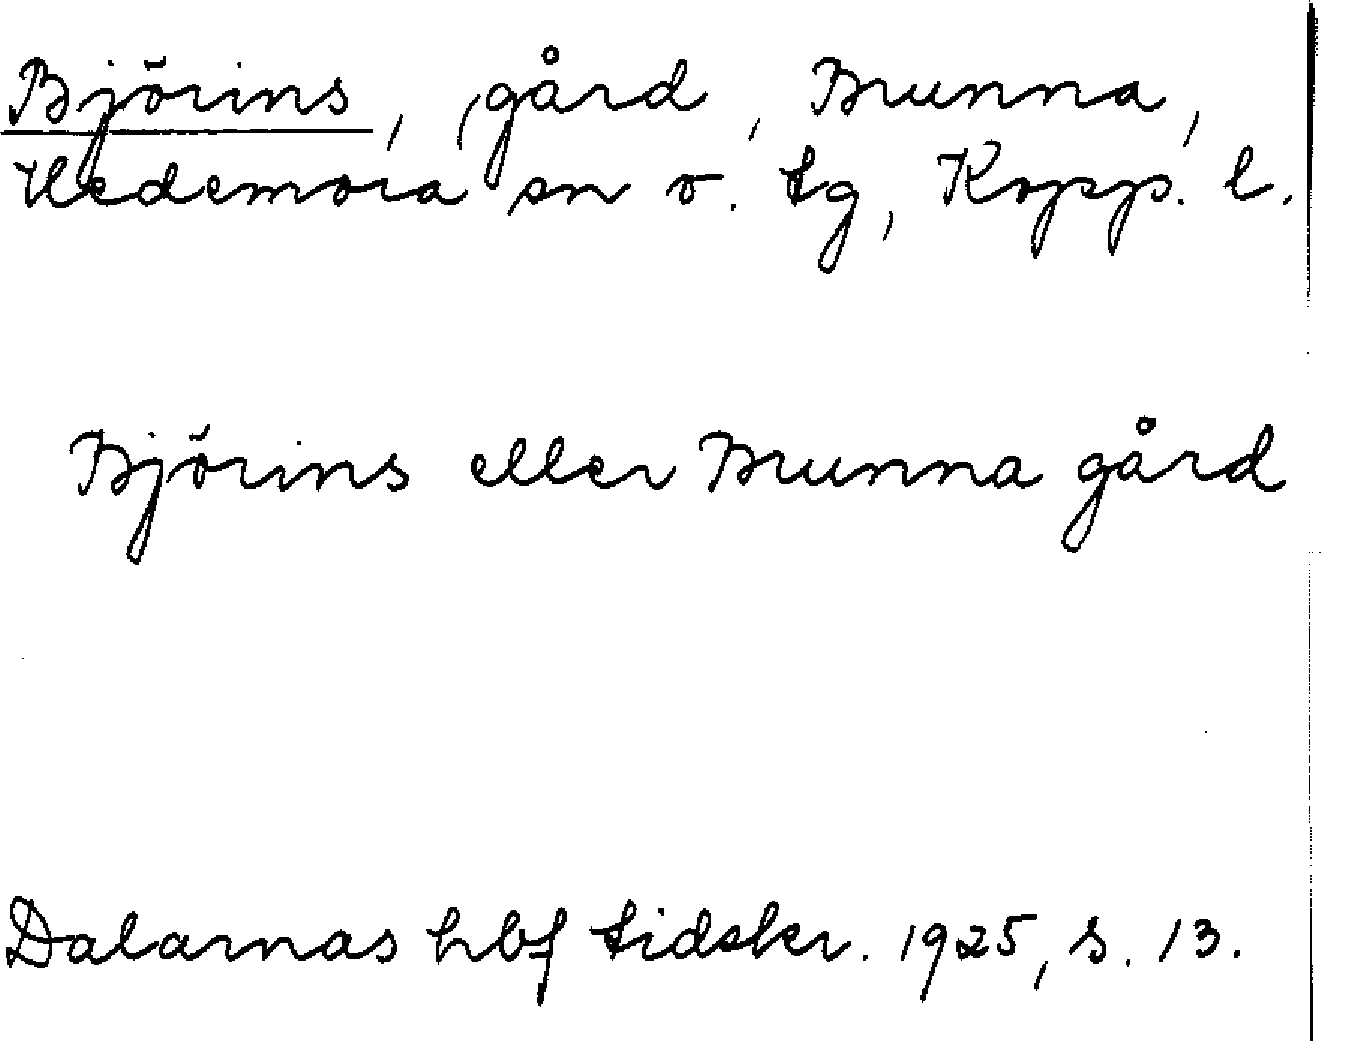 Björins, (gård, Brunna,
Hedemora sn o. tg, Kopp. l.
Björins eller Brunna gård
Dalarnas hbf tidskr. 1925, s. 13.